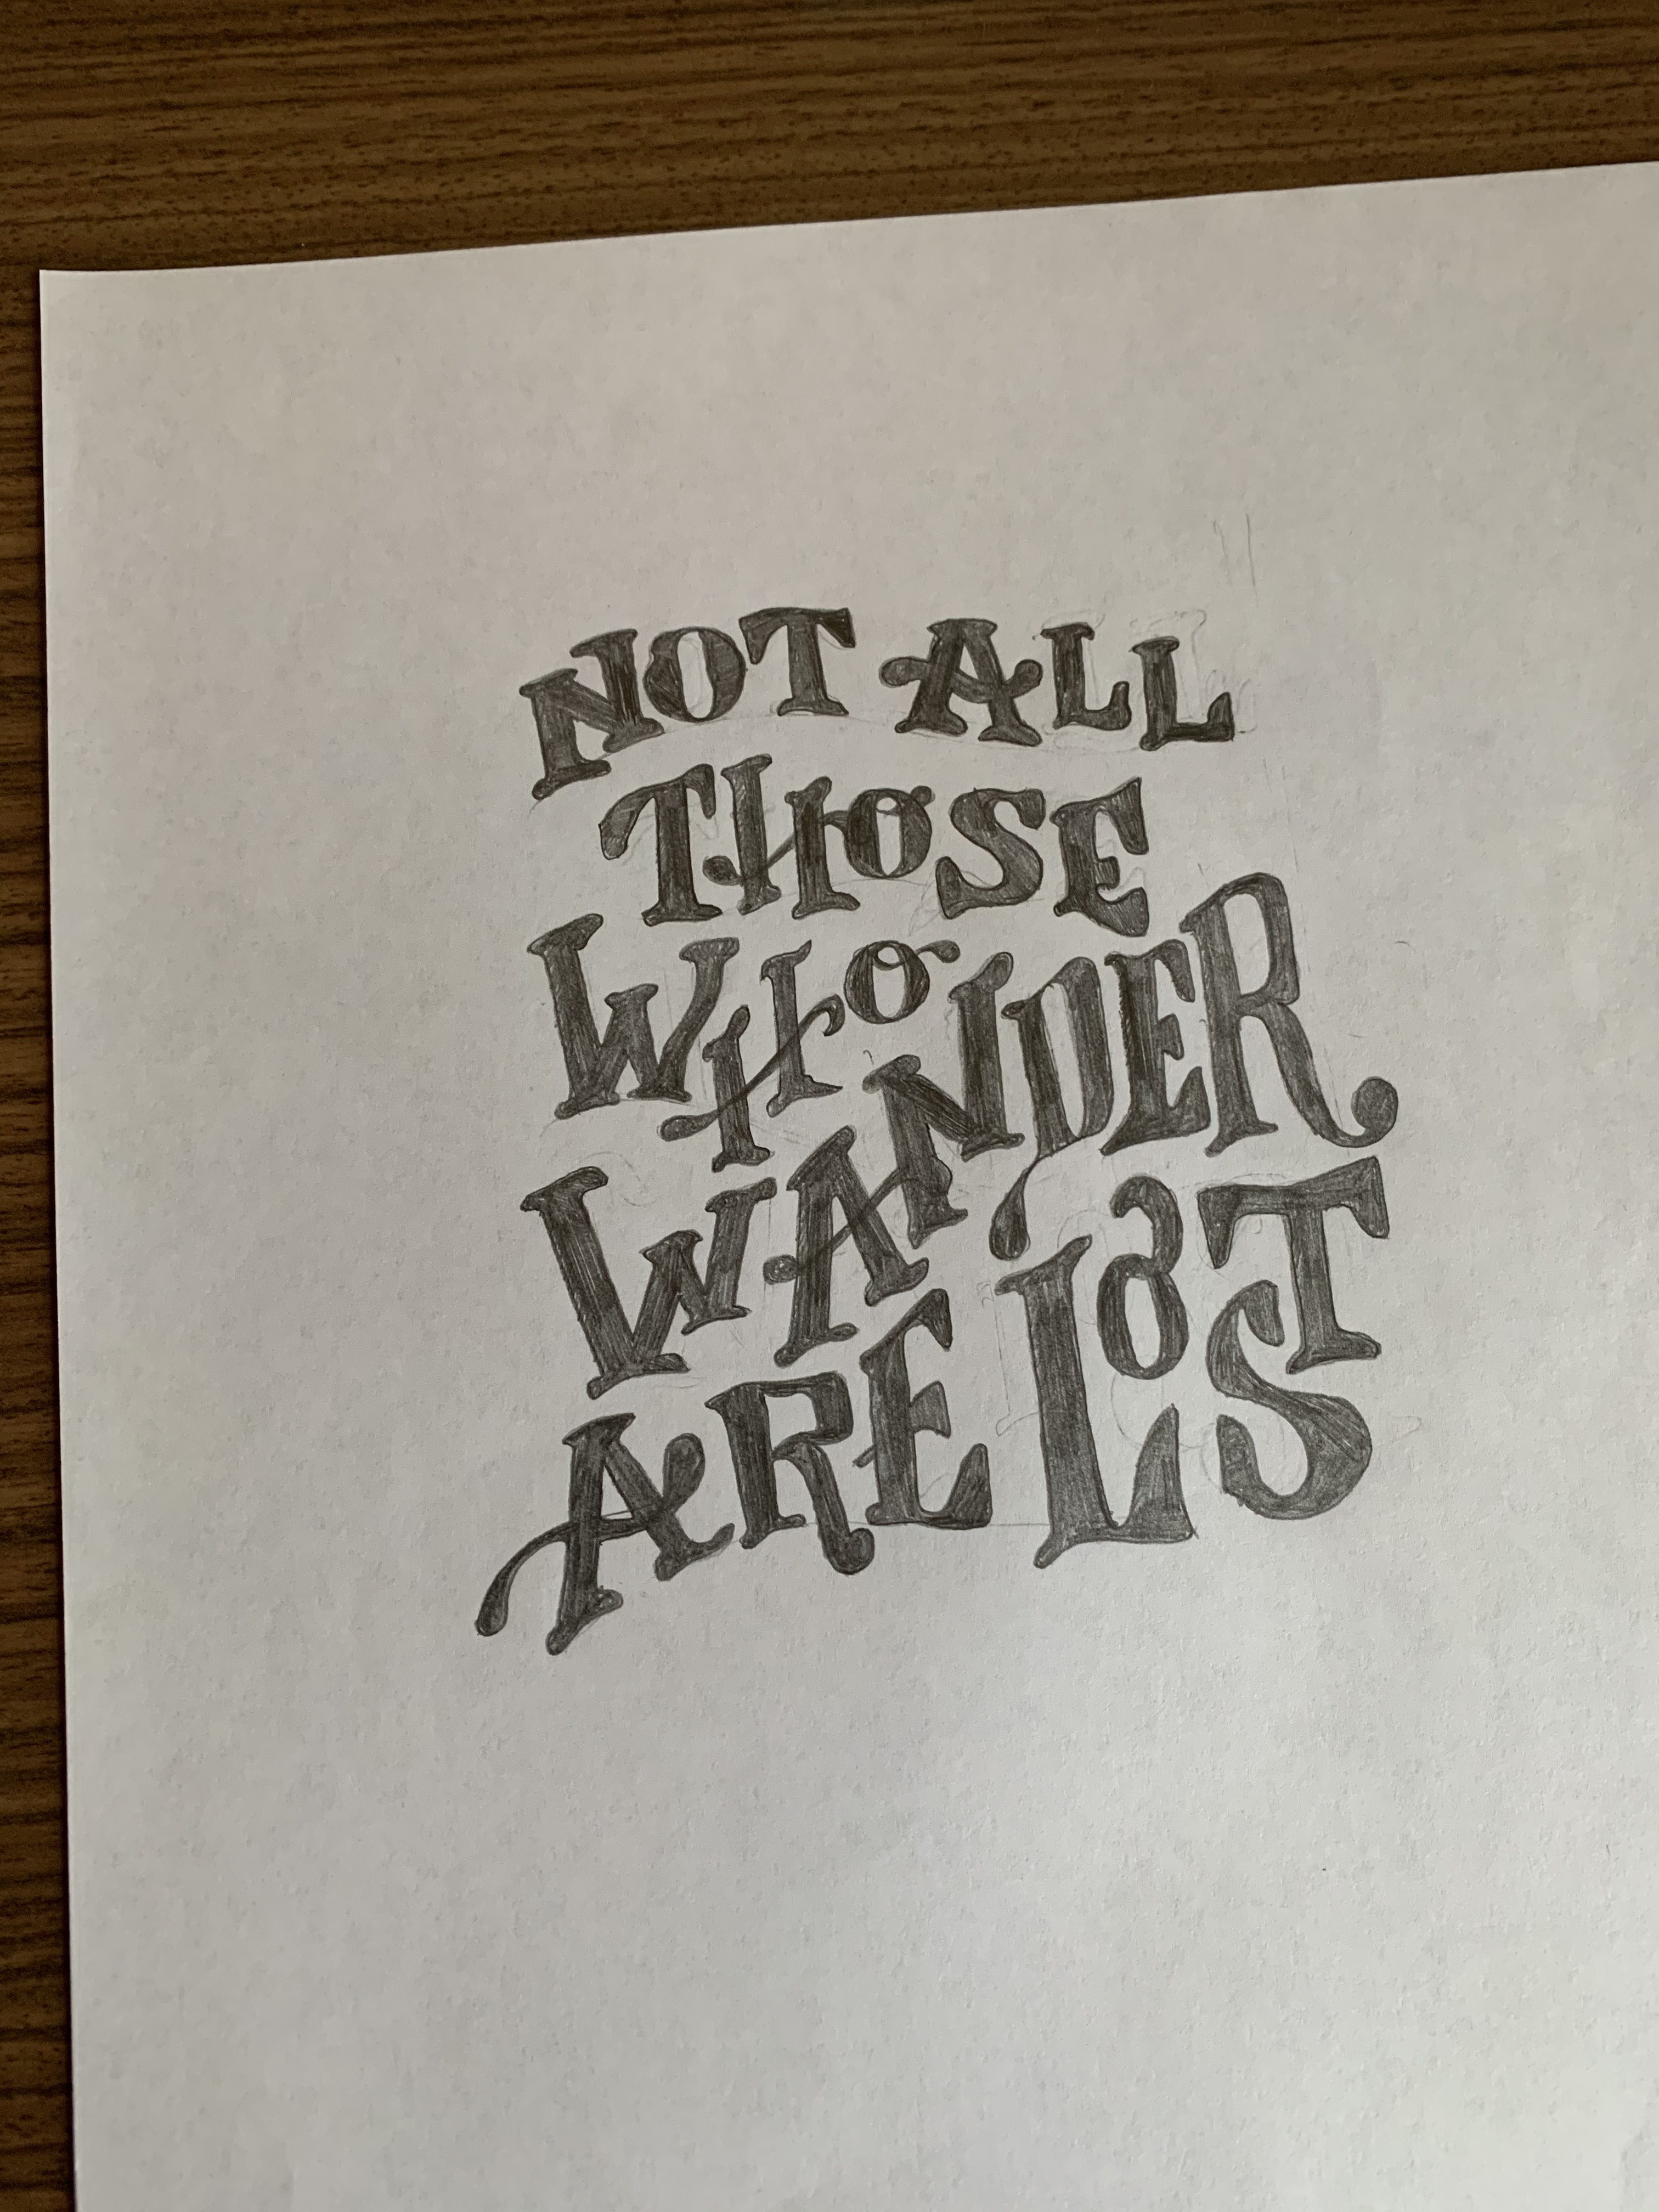 NOT ALL
THOSE
WHO
WANDER
ARE LOST